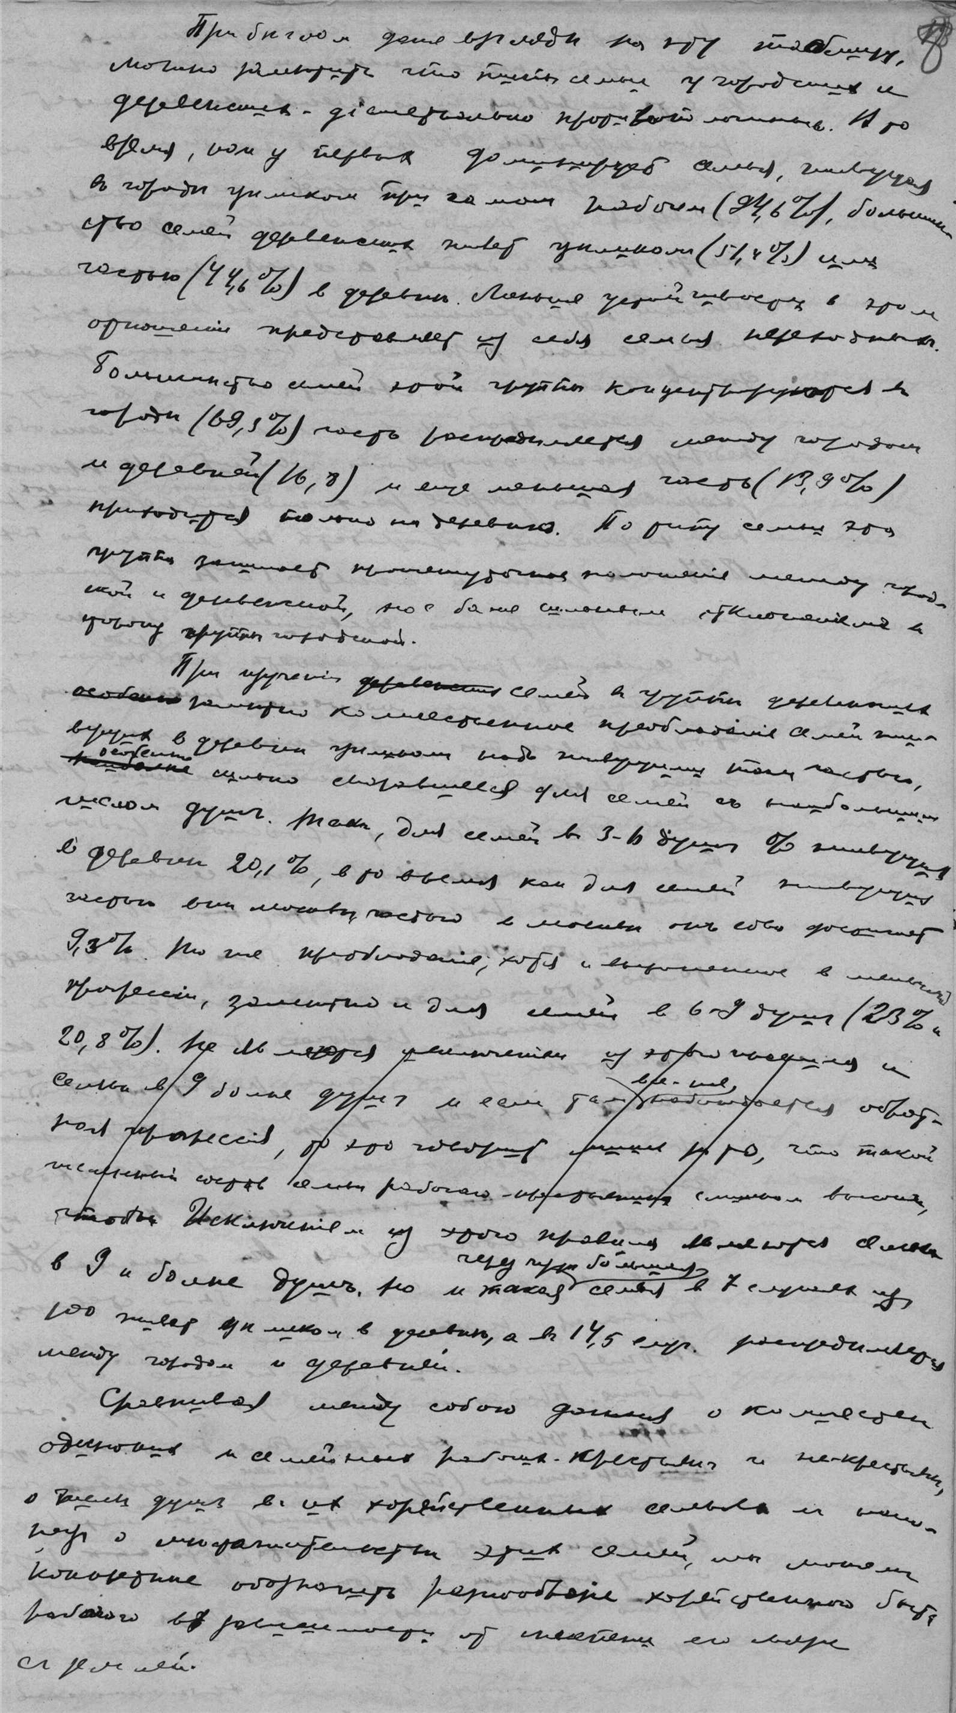 При беглом даже взгляде на эту таблицу,
можно заметить что типы семьи у городских и
деревенских - діаметрально противоположны. В то
время, как у первых доминирует семья, живущая
в городе целиком при самом рабочем (94,6%), большин-
ство семей деревенских живет целиком (51,4%) или
частью (44,6%) в деревне. Меньше устойчивости в этом
отношеніи представляет из себя семья переходных.
Большинство семей этой группы концентрируется в
городе (69,3%) часть распределяется между городом
и деревней (16,8) и еще меньшая часть (13,9%)
приходится только на деревню. По типу семьи эта
группа занимает промежуточное положеніе между город-
ской и деревенской, но с более сильным уклоненіем в
сторону группы городской.
При изученіи деревенских семей в группе деревенских
особенно заметно количественное преобладаніе семей жи-
вущих в деревне целиком над живущими там частью,
наиболее особенно сильно сказавшееся для семей съ наибольшим
числом душ. Так, для семей в 3-6 душ % живущих
в деревне 20,1%, в то время как для семей живущих
частью вне Москвы, частью в Москве он едва достигает
9,3%. То же преобладаніе, хотя и выраженное в меньшей
прогрессіи, заметно и для семей в 6-9 душ (23% и
20,8%). Не являются исключеніем из этого и
семьи в 9 более душ и если там все-же наблюдается обрат-
ная прогрессія, то это говорит лишь за то, что такой
численный состав семьи рабочаго-крестьянина слишком высок,
чтобы Исключеніем из этого правила являются семьи
в 9 и более душ, но и такая чрез чур большая семья в 7 случаях из
100 живет целиком в деревне, а в 14,5 случ. распределяется
между городом и деревней.
Сравнивая между собою данныя о количестве
одиноких и семейных рабочих-крестьян и не-крестьян,
о числе душ в их хозяйственных семьях и нако-
нец о местожительстве этих семей, мы можем
конкретнее обозначить разнообразіе хозяйственнаго быта
рабочаго в зависимости от степени его связи
с землей.